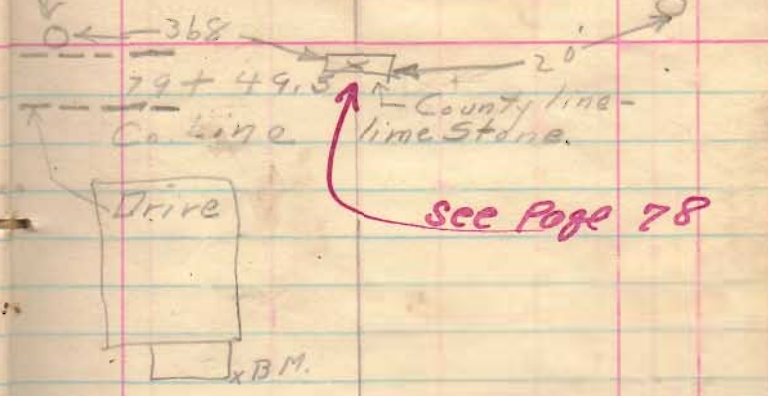 368
20
79 + 49.5
County line-
Co. Line lime Stone.
Drive
See Page 78
x B M.